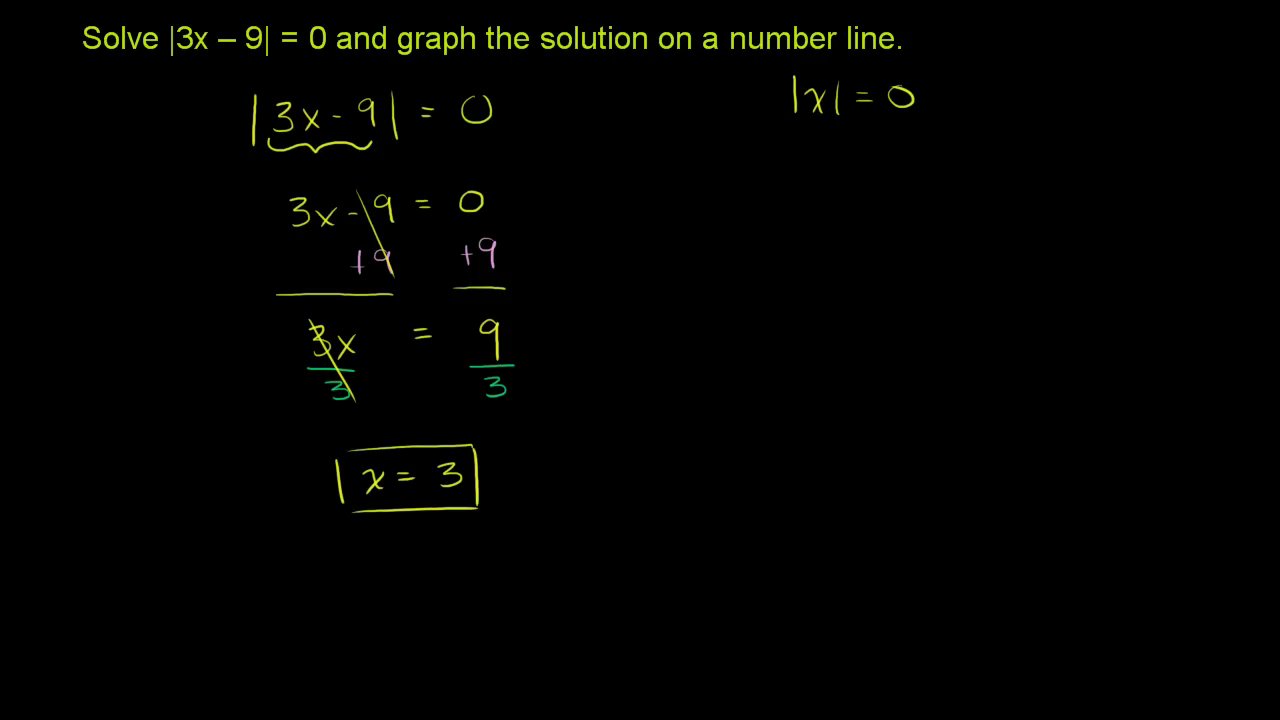 Solve |3x – 9| = 0 and graph the solution on a number line.
|3x - 9| = 0
|x| = 0
3x - 9 = 0
+9 +9
3x = 9
3 3
x = 3